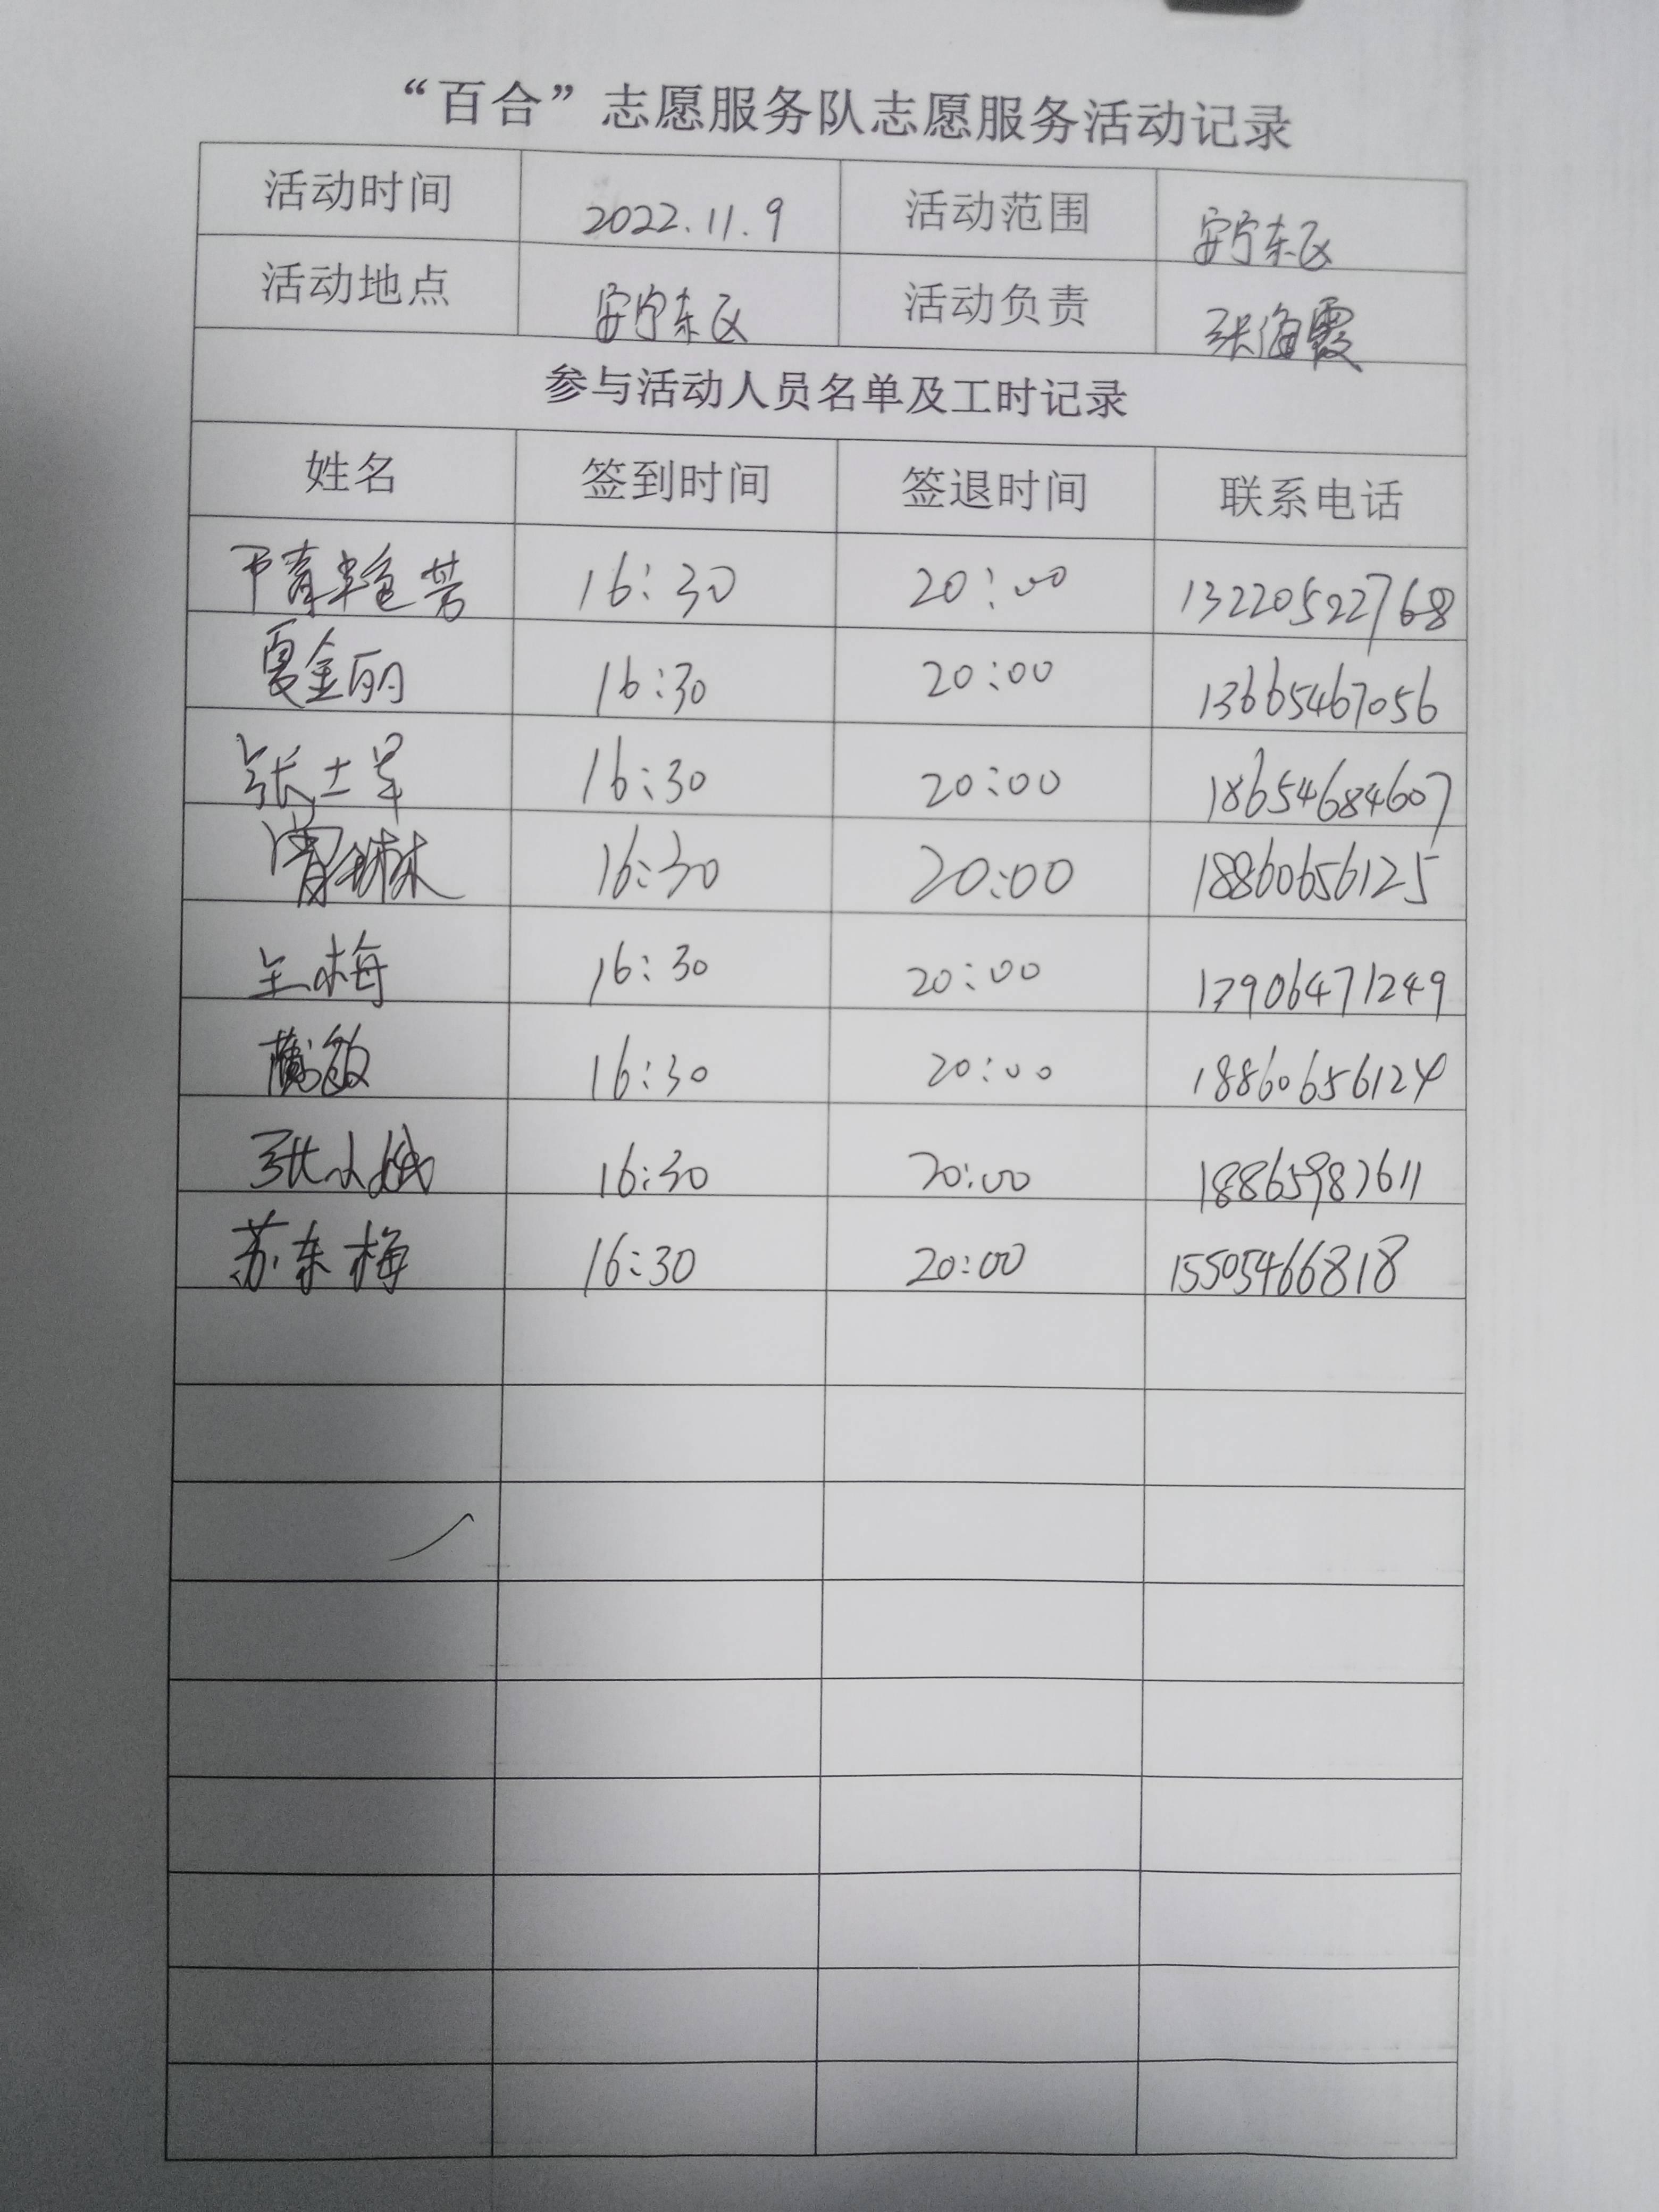 “百合”志愿服务队志愿服务活动记录
活动时间 2022.11.9 活动范围 安宁东区
活动地点 安宁东区 活动负责 张海霞
参与活动人员名单及工时记录
姓名 签到时间 签退时间 联系电话
16:30 20:00 13220522768
夏金丽 16:30 20:00 13665467056
张士早 16:30 20:00 18654684607
16:30 20:00 18860656125
王梅 16:30 20:00 13906471249
16:30 20:00 18860656124
张小娥 16:30 20:00 18865987611
苏东梅 16:30 20:00 15505466818